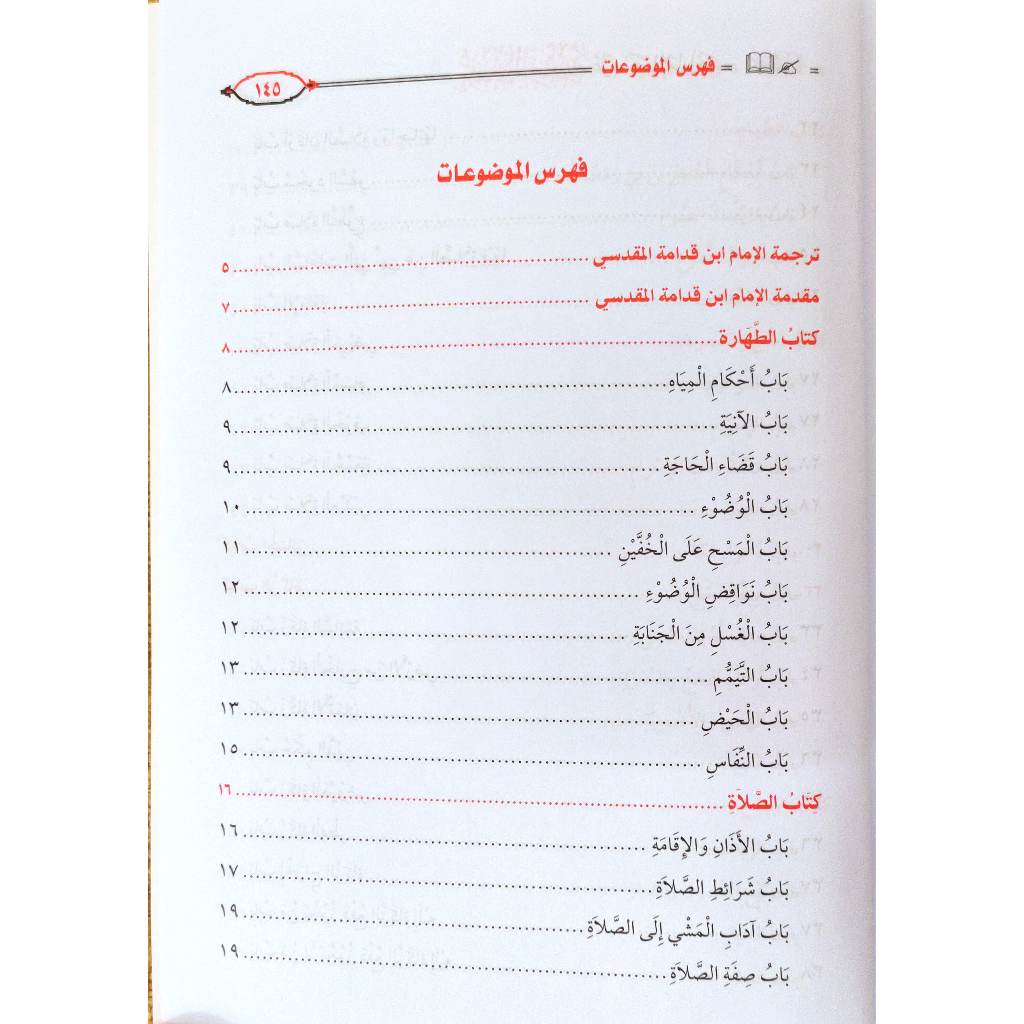 = فهرس الموضوعات = ١٤٥
فهرس الموضوعات
ترجمة الإمام ابن قدامة المقدسي ........ ٥
مقدمة الإمام ابن قدامة المقدسي ........ ٧
كتابُ الطَّهَارة ........ ٨
بَابُ أَحْكَامِ الْمِيَاهِ ........ ٨
بَابُ الآنِيَةِ ........ ٩
بَابُ قَضَاءِ الْحَاجَةِ ........ ٩
بَابُ الْوُضُوْءِ ........ ١٠
بَابُ الْمَسْحِ عَلَى الْخُفَّيْنِ ........ ١١
بَابُ نَوَاقِضِ الْوُضُوْءِ ........ ١٢
بَابُ الْغُسْلِ مِنَ الْجَنَابَةِ ........ ١٢
بَابُ التَّيَمُّمِ ........ ١٣
بَابُ الْحَيْضِ ........ ١٣
بَابُ النِّفَاسِ ........ ١٥
كِتَابُ الصَّلاَةِ ........ ١٦
بَابُ الأَذَانِ وَالإِقَامَةِ ........ ١٦
بَابُ شَرَائِطِ الصَّلاَةِ ........ ١٧
بَابُ آدَابِ الْمَشْيِ إِلَى الصَّلاَةِ ........ ١٩
بَابُ صِفَةِ الصَّلاَةِ ........ ١٩